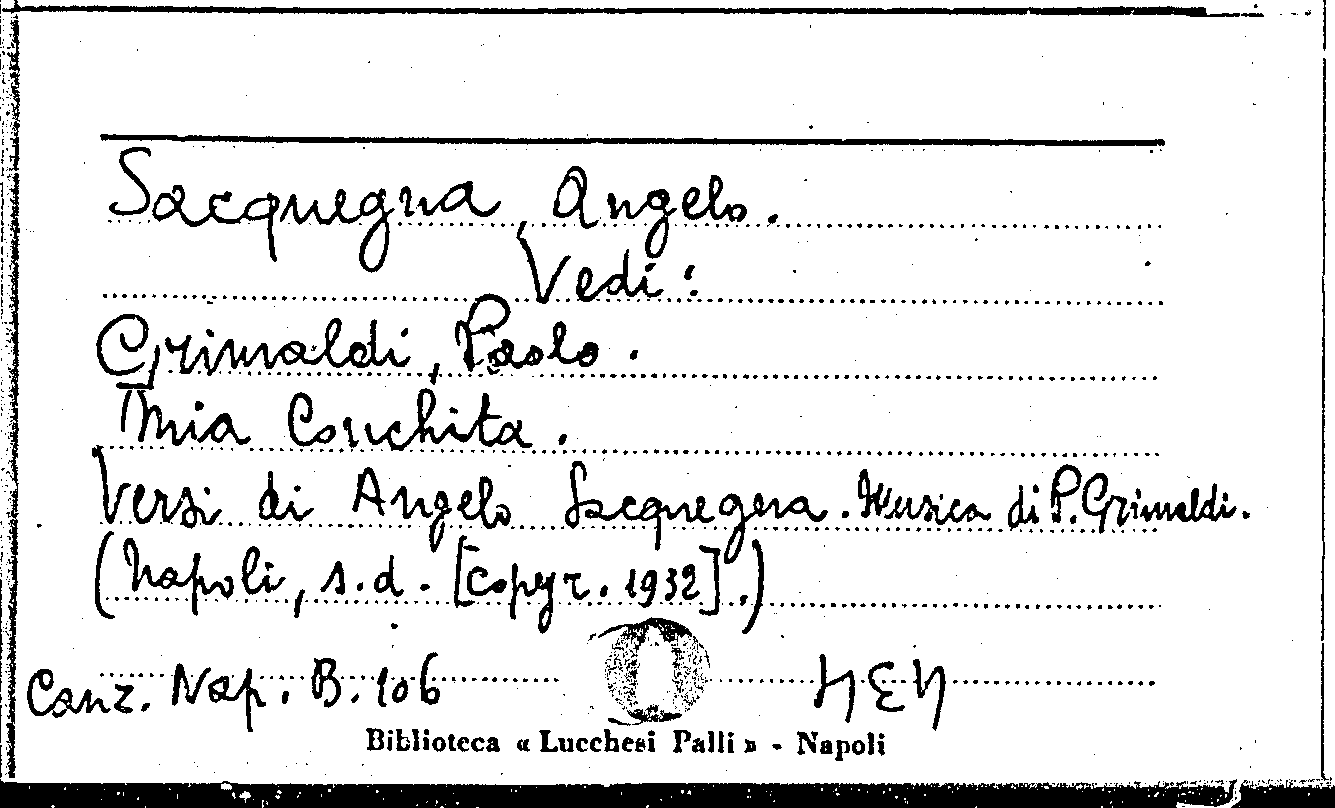 Sacquegna, Angelo.
Vedi:
Grimaldi, Paolo.
Mia Conchita.
Versi di Angelo Sacquegna. Musica di P. Grimaldi.
(Napoli, s.d. [copyr. 1932].)
Canz. Nap. B. 106
Biblioteca « Lucchesi Palli » - Napoli